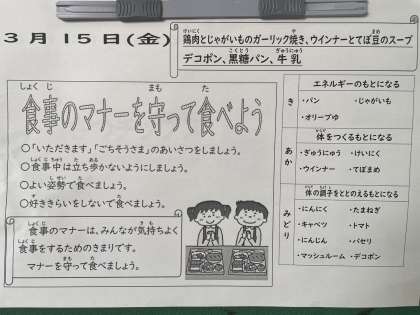 3月15日(金)
鶏肉とじゃがいものガーリック焼き、ウインナーとてぼ豆のスープ
デコポン、黒糖パン、牛乳
食事のマナーを守って食べよう
○「いただきます」「ごちそうさま」のあいさつをしましょう。
○食事中は立ち歩かないようにしましょう。
○よい姿勢で食べましょう。
○好ききらいをしないで食べましょう。
食事のマナーは、みんなが気持ちよく
食事をするためのきまりです。
マナーを守って食べましょう。
き
エネルギーのもとになる
・パン ・じゃがいも
・オリーブゆ
あか
体をつくるもとになる
・ぎゅうにゅう ・けいにく
・ウインナー ・てぼまめ
みどり
体の調子をととのえるもとになる
・にんにく ・たまねぎ
・キャベツ ・トマト
・にんじん ・パセリ
・マッシュルーム ・デコポン